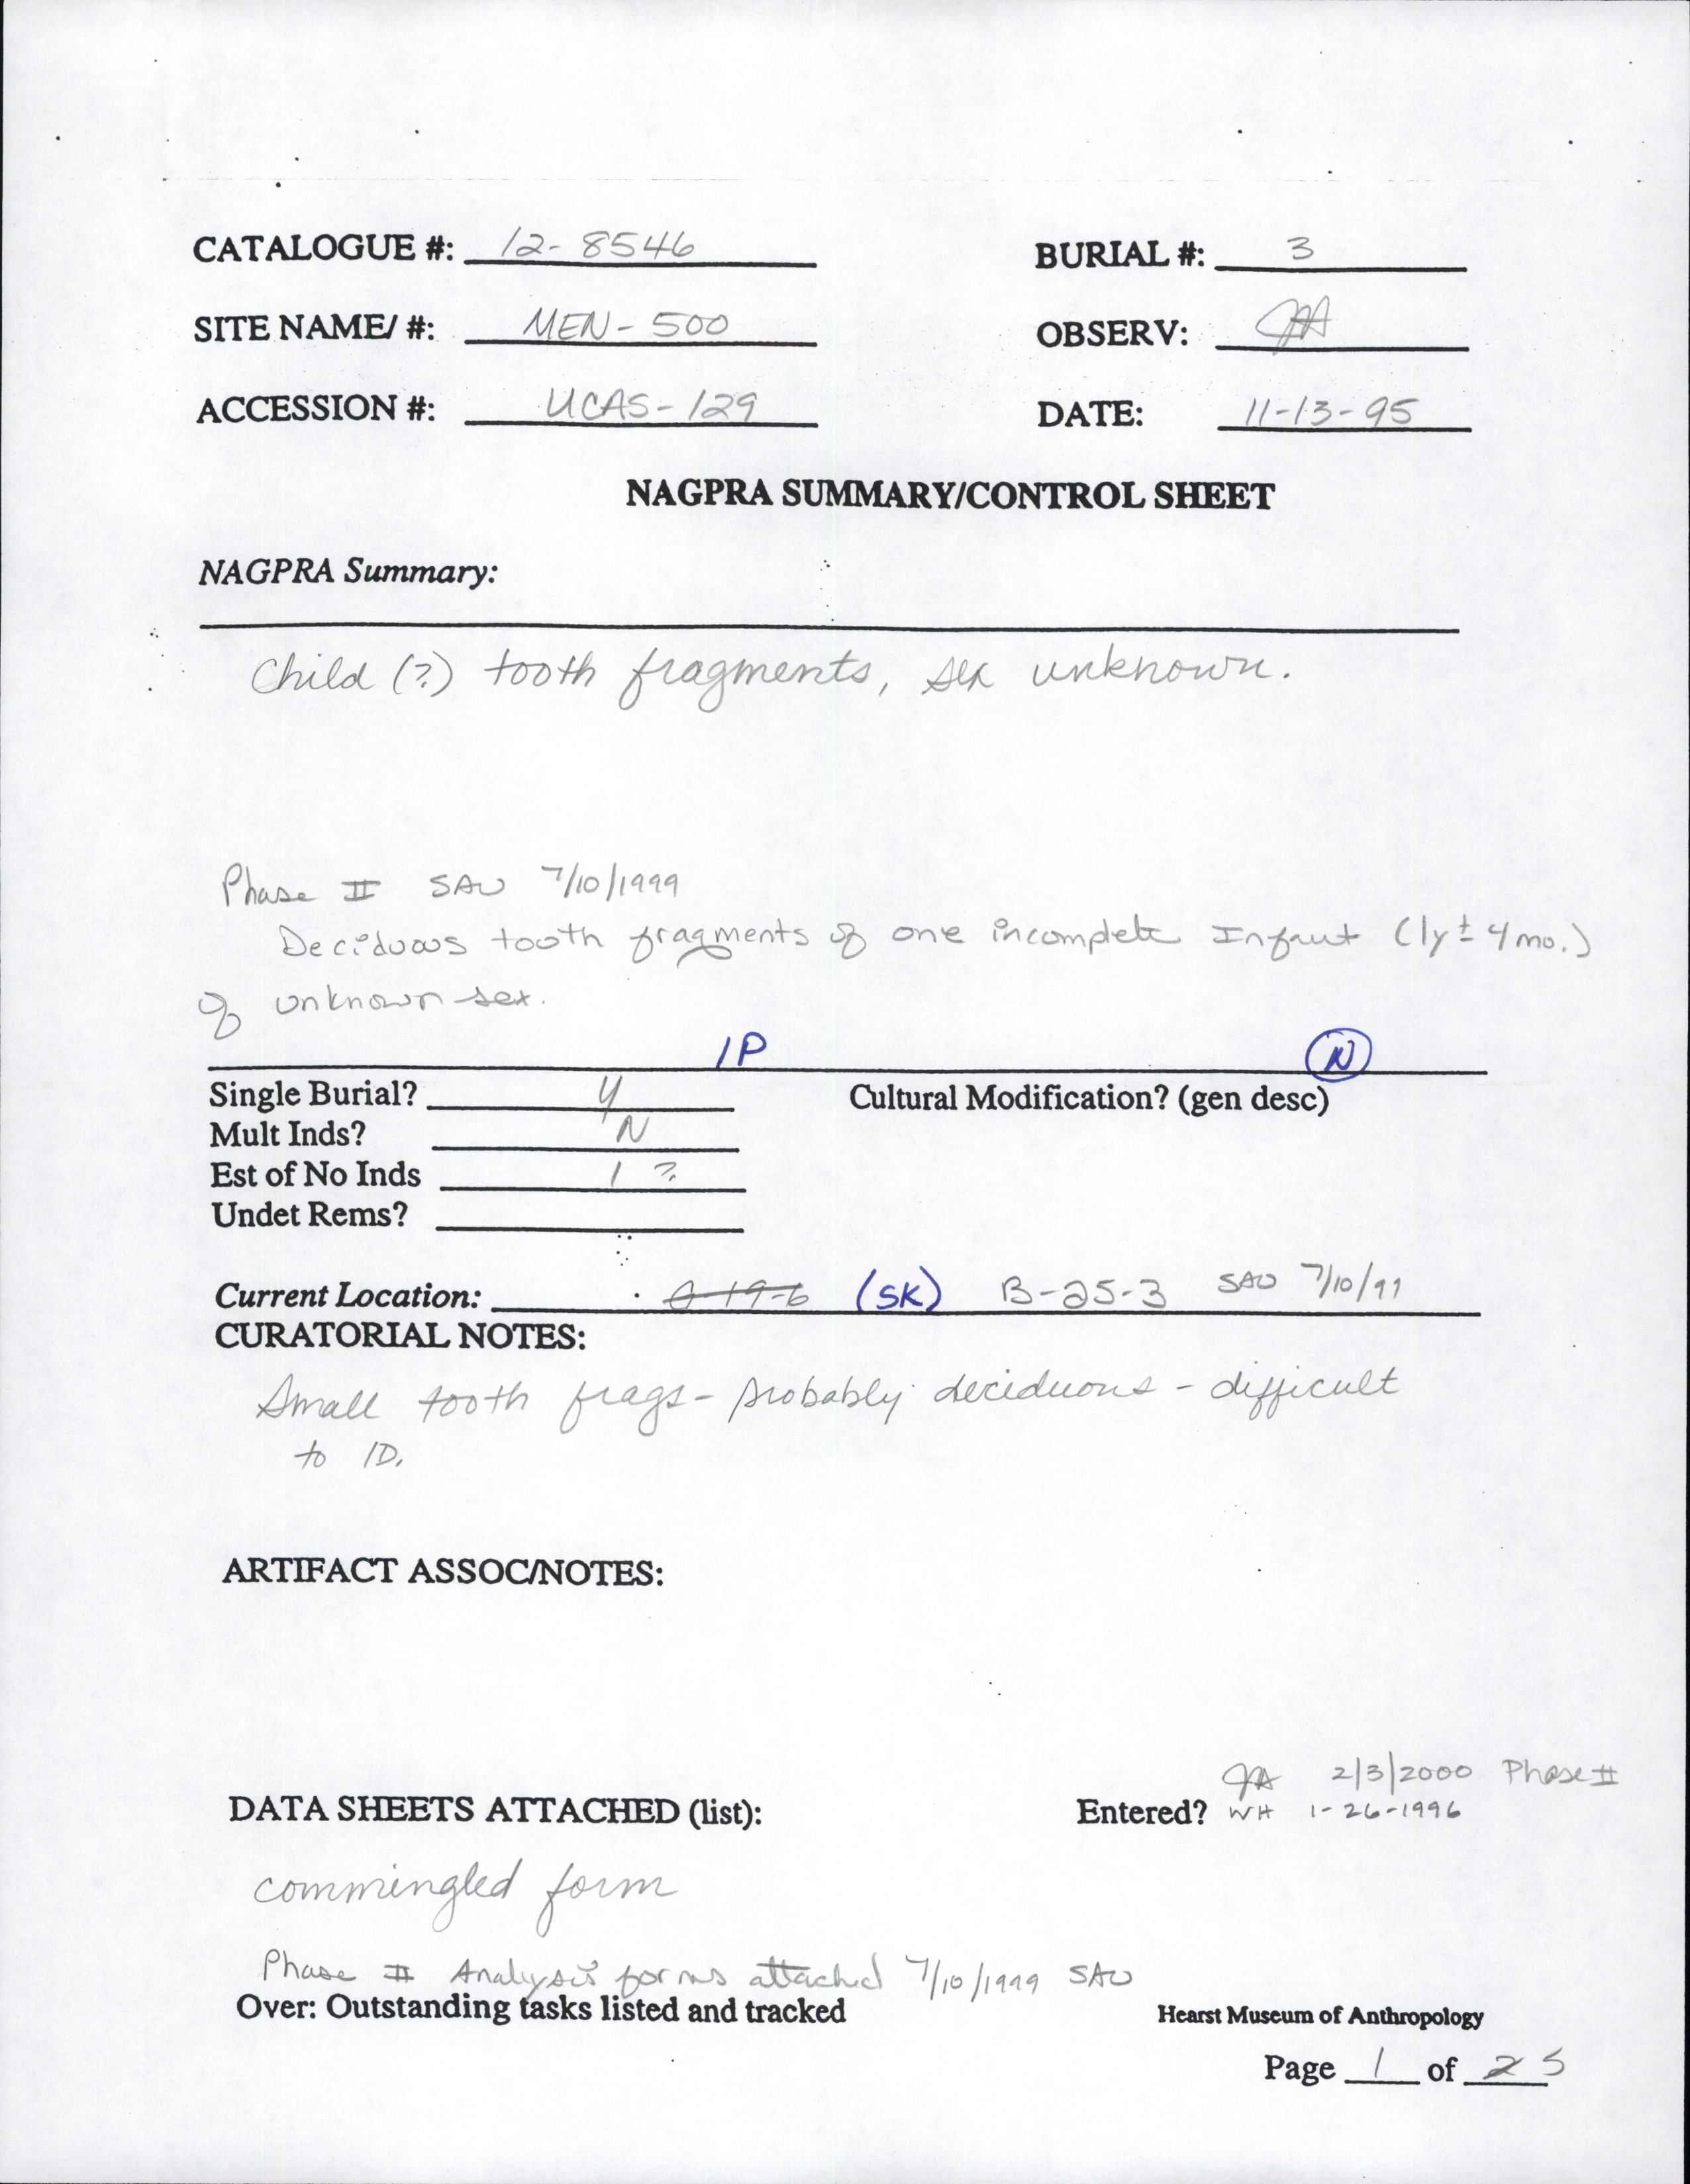 CATALOGUE #: 12-8546 BURIAL #: 3
SITE NAME/ #: MEN-500 OBSERV: JA
ACCESSION #: UCAS-129 DATE: 11-13-95
NAGPRA SUMMARY/CONTROL SHEET
NAGPRA Summary:
Child (?) tooth fragments, sex unknown.
Phase II SAW 7/10/1999
Deciduous tooth fragments of one incomplete Infant (1y ± 4 mo.)
of unknown sex.
1P N
Single Burial? Y Cultural Modification? (gen desc)
Mult Inds? N
Est of No Inds 1 ?
Undet Rems?
Current Location: (SK) B-25-3 SAW 7/10/99
CURATORIAL NOTES:
Small tooth frags - probably deciduous - difficult
to ID.
ARTIFACT ASSOC/NOTES:
JA 2/3/2000 Phase II
DATA SHEETS ATTACHED (list): Entered? WH 1-26-1996
commingled form
Phase II Analysis forms attached 7/10/1999 SAW
Over: Outstanding tasks listed and tracked
Hearst Museum of Anthropology
Page 1 of 2 5